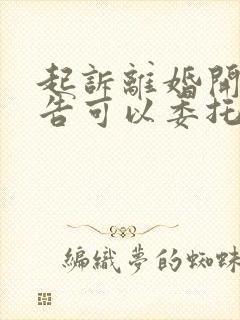 起訴離婚開
告可以委托
編織夢的蜘蛛